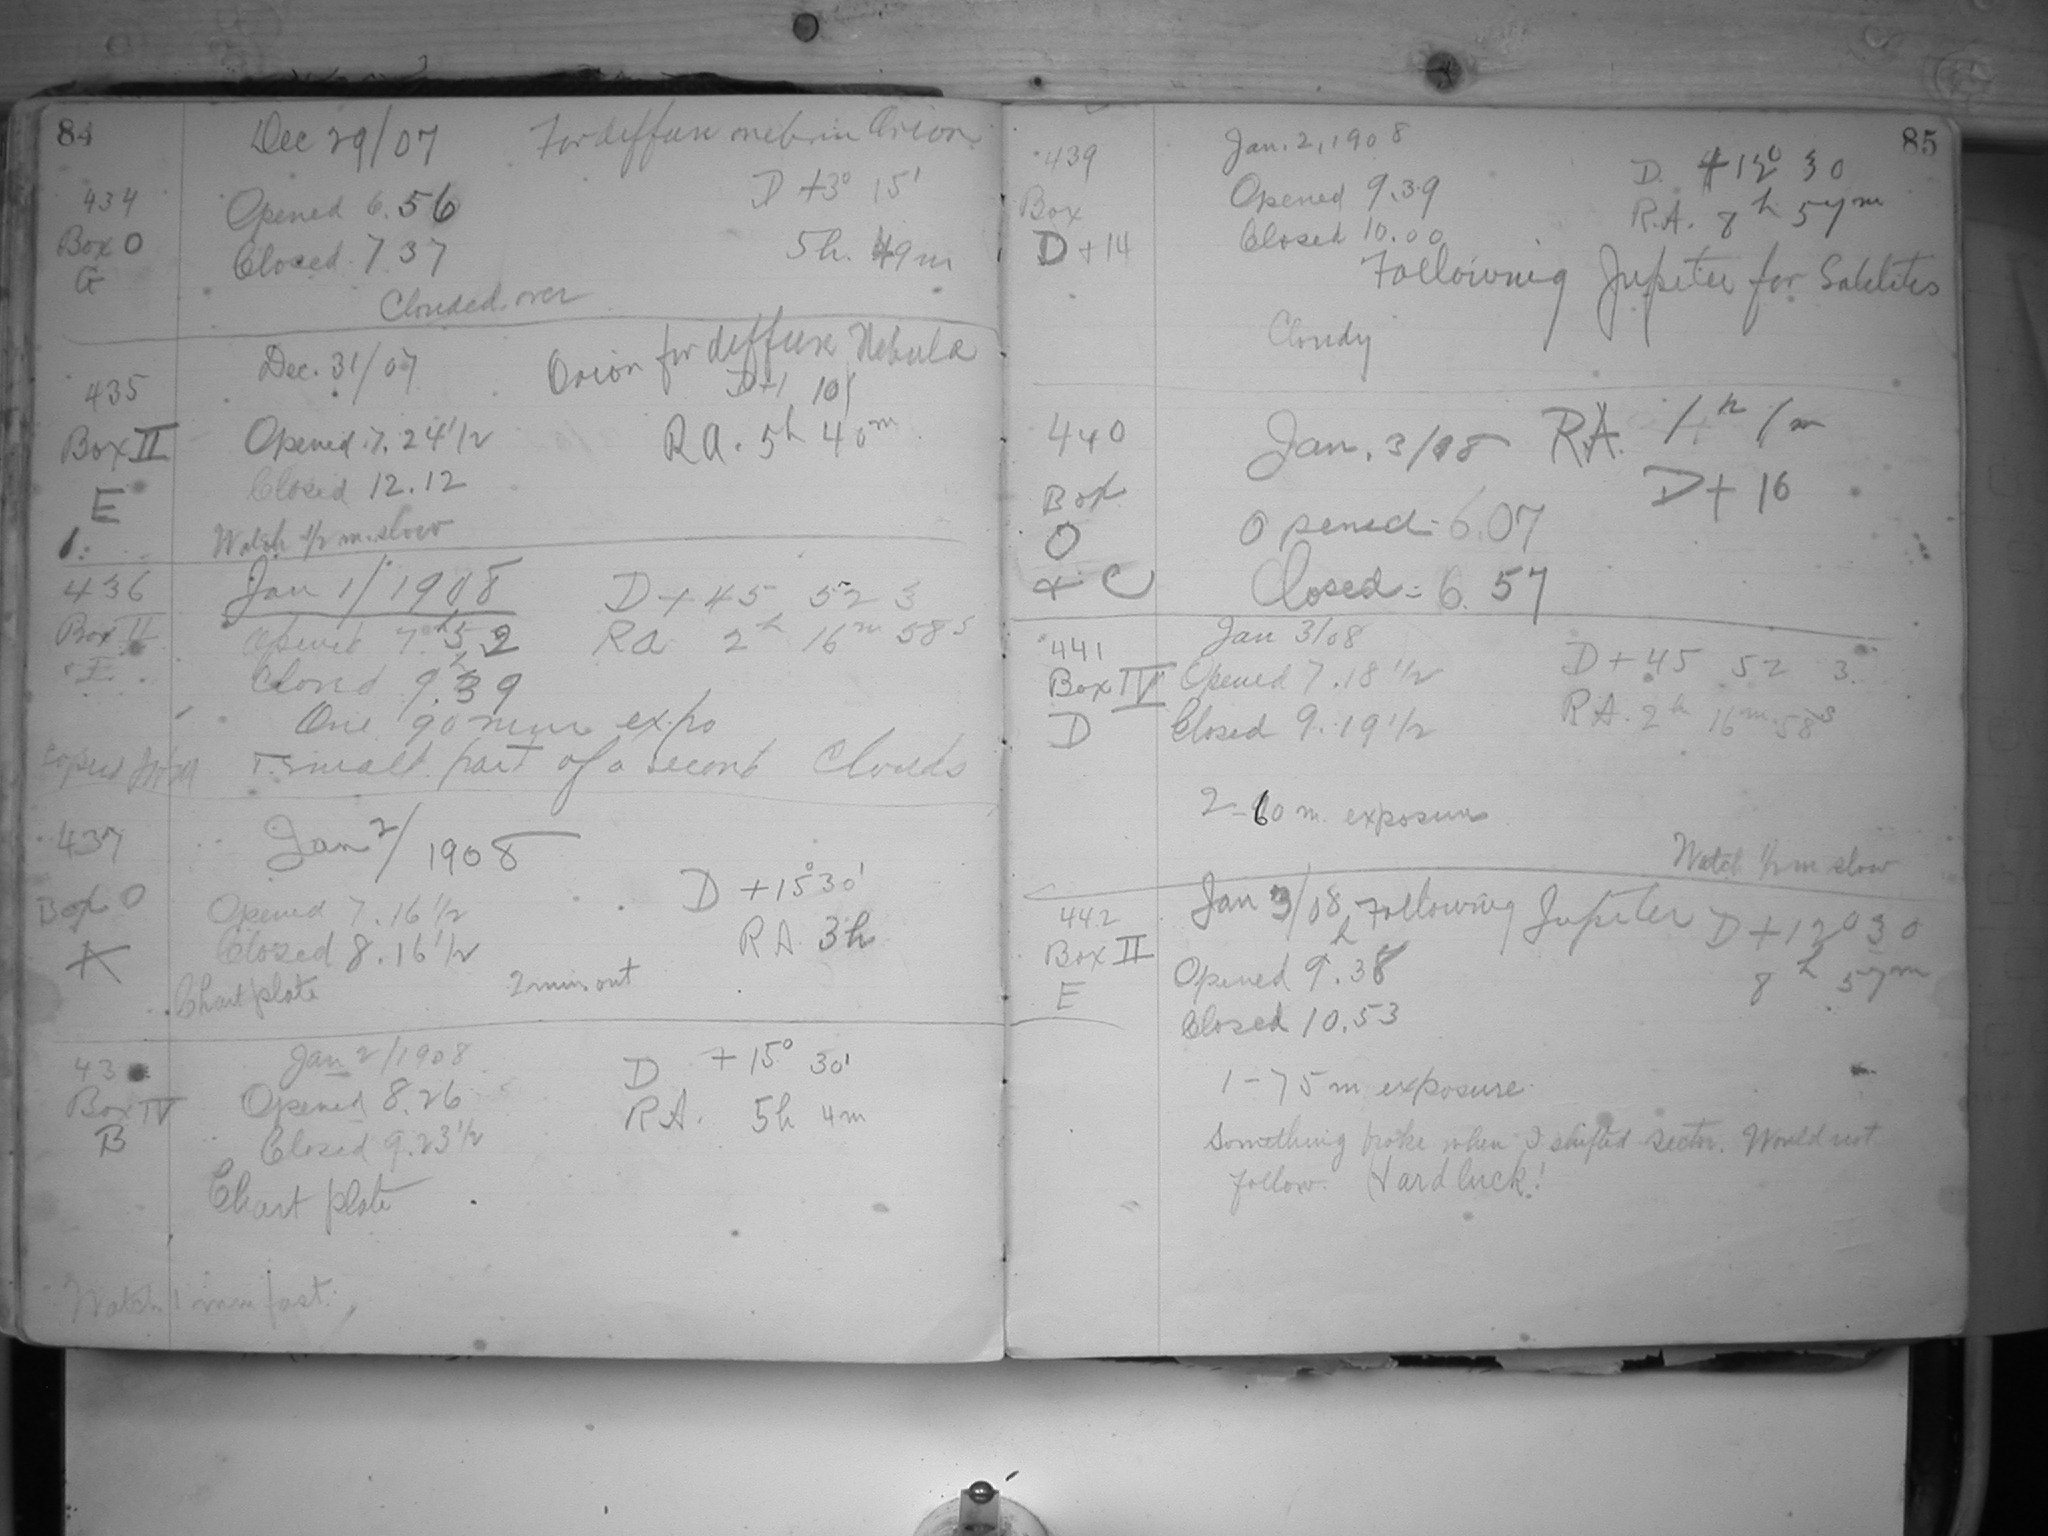 84
Dec 29/07 For diffuse neb in Orion
434 D +3° 15'
Opened 6.56
Box O
G
Closed 7 37 5h. 49m
Clouded over
Dec. 31/07 Orion for diffuse Nebula
435 D+1 10
Box II Opened 7.24 1/2 RA. 5h 40m
E Closed 12.12
Watch 1/2 m. slow
436 Jan 1/1908 D + 45 52 3
Box II Opened 7h 52 RA 2h 16m 58s
Closed 9.39
One 90 min expo
small part of a second Clouds
437 Jan 2/1908
D +15° 30'
Box O Opened 7.16 1/2
A Closed 8.16 1/2 RA 3h
Chart plate 2 min out
43 Jan 2/1908 D +15° 30'
Box IV Opened 8.26 RA. 5h 4m
B Closed 9.23 1/2
Chart plate
Watch 1 min fast.
85
439 Jan. 2, 1908
Box Opened 9.39 D. +12° 30
D+14 Closed 10.00 R.A. 8h 57m
Following Jupiter for Satelites
Cloudy
440 Jan. 3/08 RA. 1h 1m
D+ 16
Box
O
+ C
Opened - 6.07
Closed = 6.57
441 Jan 3/08
Box IV Opened 7.18 1/2 D + 45 52 3.
D Closed 9.19 1/2 RA. 2h 16m 58s
2-60 m. exposures
Watch 1/2 m slow
442 Jan 3/08 Following Jupiter D +12° 30
Box II Opened 9h.38 8h 57m
E Closed 10.53
1 - 75 m exposure.
Something broke when I shifted sector. Would not
follow. Hard luck!